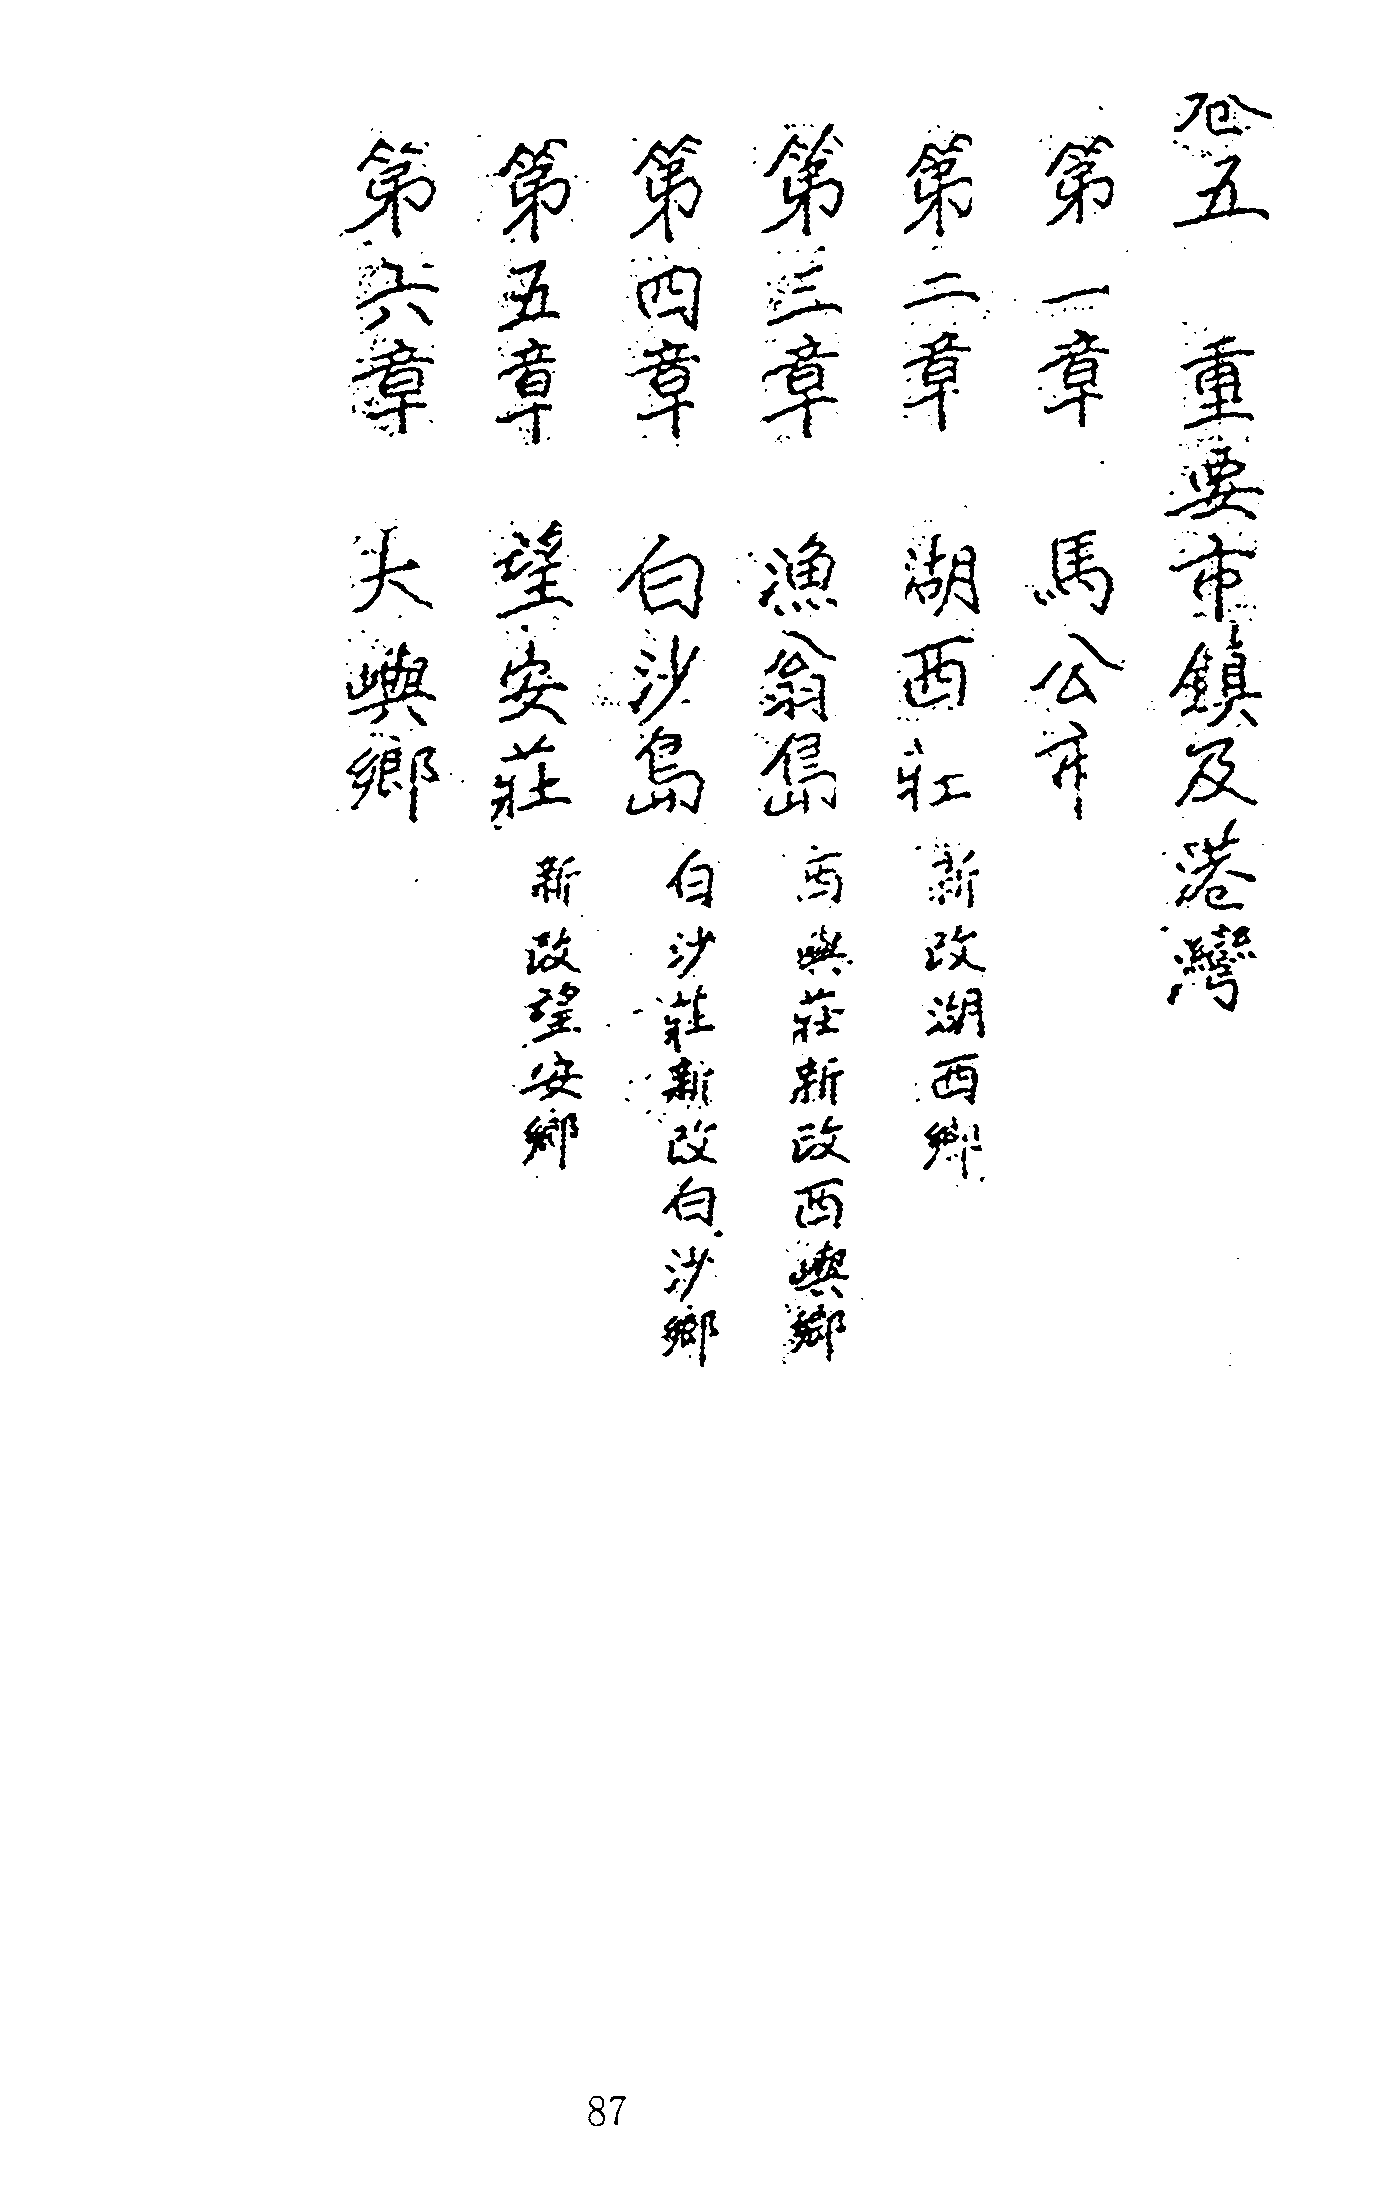 卷五　重要市鎮及港灣
第一章　馬公市
第二章　湖西庄　新改湖西鄉
第三章　漁翁島　西嶼莊新改西嶼鄉
第四章　白沙島　白沙莊新改白沙鄉
第五章　望安莊　新改望安鄉
第六章　大嶼鄉
87